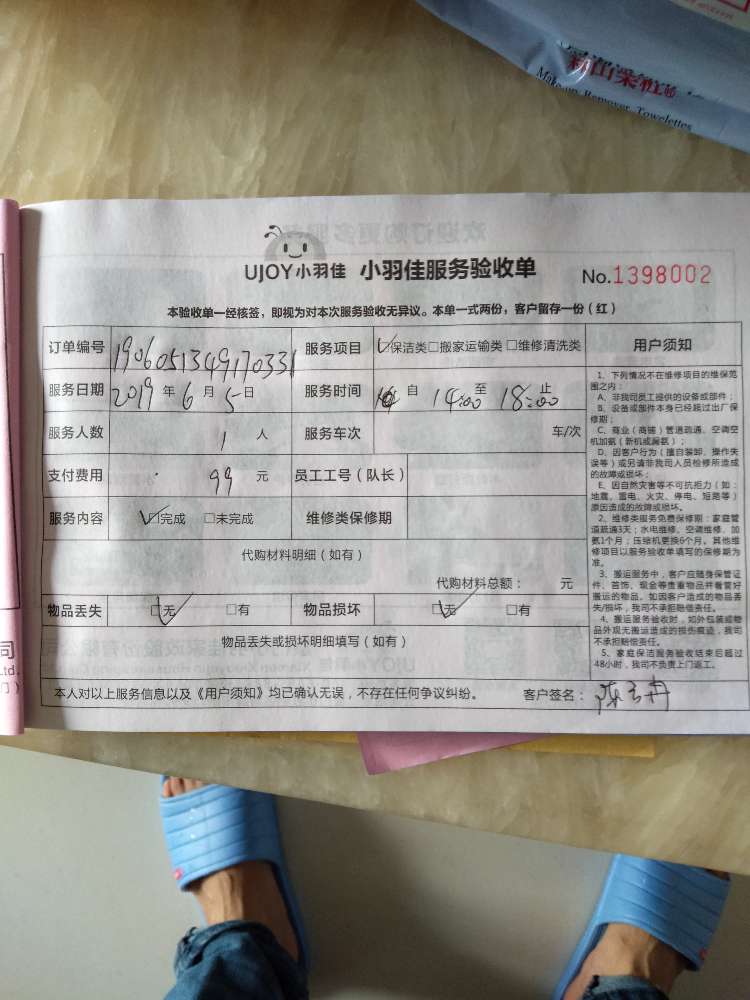 Make-up Remover Towelettes
UJOY小羽佳 小羽佳服务验收单 No.1398002
本验收单一经核签，即视为对本次服务验收无异议。本单一式两份，客户留存一份（红）
订单编号 1906051349170331 服务项目 ☑保洁类□搬家运输类□维修清洗类 用户须知
服务日期 2019年6月5日 服务时间 自 14:00 至 18:00 止
服务人数 1 人 服务车次 车/次
支付费用 99 元 员工工号（队长）
服务内容 ☑完成 □未完成 维修类保修期
代购材料明细（如有）
代购材料总额： 元
物品丢失 ☑无 □有 物品损坏 ☑无 □有
物品丢失或损坏明细填写（如有）
本人对以上服务信息以及《用户须知》均已确认无误，不存在任何争议纠纷。 客户签名：
1、下列情况不在维修项目的维保范
围之内：
A、非我司员工提供的设备或部件；
B、设备或部件本身已经超过出厂保
修期；
C、商业（商铺）管道疏通、空调空
机加氨（新机或漏氨）；
D、因客户行为（擅自装卸、操作失
误等）或另请非我司人员检修所造成
的故障或损坏；
E、因自然灾害等不可抗拒力（如：
地震、雷电、火灾、停电、短路等）
原因造成的故障或损坏。
2、维修类服务免费保修期：家庭管
道疏通3天；水电维修、空调维修、加
氨1个月；压缩机更换6个月。其他维
修项目以服务验收单填写的保修期为
准。
3、搬运服务中，客户应随身保管证
件、首饰、现金等贵重物品并看管好
搬运的物品。如因客户造成的物品丢
失/损坏，我司不承担赔偿责任。
4、搬运服务验收时，如外包装或物
品外观无搬运造成的损伤痕迹，我司
不承担赔偿责任。
5、家庭保洁服务验收结束后超过
48小时，我司不负责上门返工。
司
Ltd.
门）